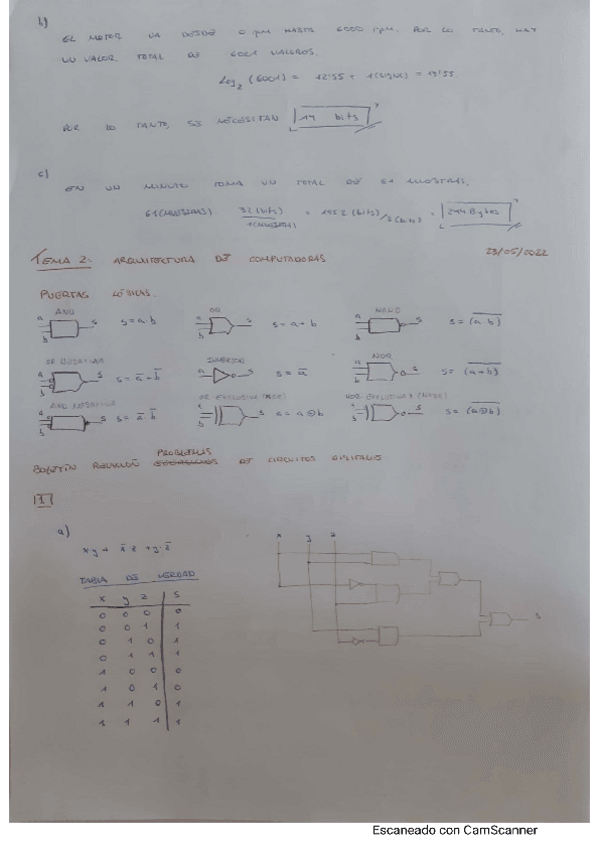 b)
EL MOTOR VA DESDE 0 rpm HASTA 6000 rpm. POR LO TANTO, HAY
UN VALOR TOTAL DE 6001 VALORES.
Log₂ (6001) = 12'55 + 1(SIGNO) = 13'55.
POR LO TANTO, SE NECESITAN 14 bits
c)
EN UN MINUTO TOMA UN TOTAL DE 61 MUESTRAS,
61(MUESTRAS) · 32(bits)/1(MUESTRA) = 1952(bits)/8(bits) = 244 Bytes
TEMA 2: ARQUITECTURA DE COMPUTADORAS 23/05/2022
PUERTAS LÓGICAS.
AND OR NAND
a b s s=a·b a b s s=a+b a b s s=(a·b)̅
OR NEGATIVA INVERSOR NOR
a b s s=a̅+b̅ a s s=a̅ a b s s=(a+b)̅
AND NEGATIVA OR EXCLUSIVA (XOR) NOR EXCLUSIVA (XNOR)
a b s s=a̅·b̅ a b s s=a⊕b a b s s=(a⊕b)̅
PROBLEMAS
BOLETÍN RELACIÓN DE CIRCUITOS DIGITALES
1
a)
xy + x̅·z + y·z̅
x y z
S
TABLA DE VERDAD
x y z S
0 0 0 0
0 0 1 1
0 1 0 1
0 1 1 1
1 0 0 0
1 0 1 0
1 1 0 1
1 1 1 1
Escaneado con CamScanner